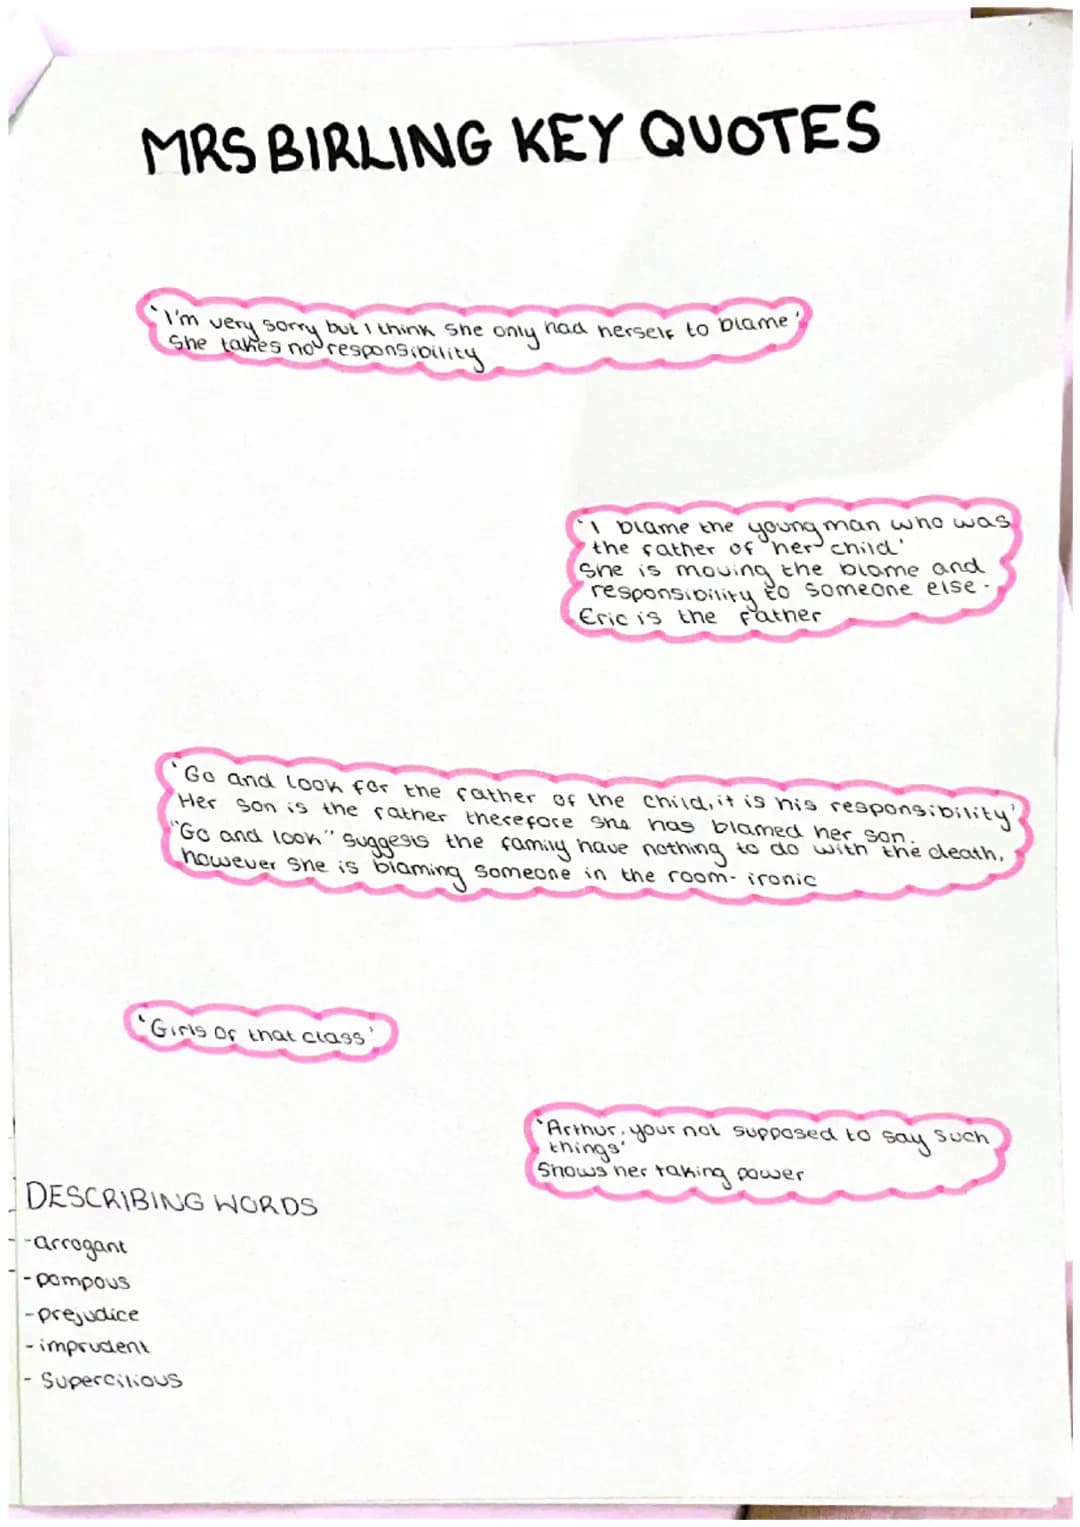 MRS BIRLING KEY QUOTES
'I'm very sorry but I think she only had herself to blame'
She takes no responsibility
'I blame the young man who was
the father of her child.'
She is moving the blame and
responsibility to someone else -
Eric is the father
'Go and look for the father of the child, it is his responsibility'
Her son is the father therefore she has blamed her son.
"Go and look" suggests the family have nothing to do with the death,
however she is blaming someone in the room- ironic
'Girls of that class'
'Arthur, your not supposed to say such
things'
Shows her taking power
DESCRIBING WORDS
-arrogant
-pompous
-prejudice
-imprudent
- Supercilious